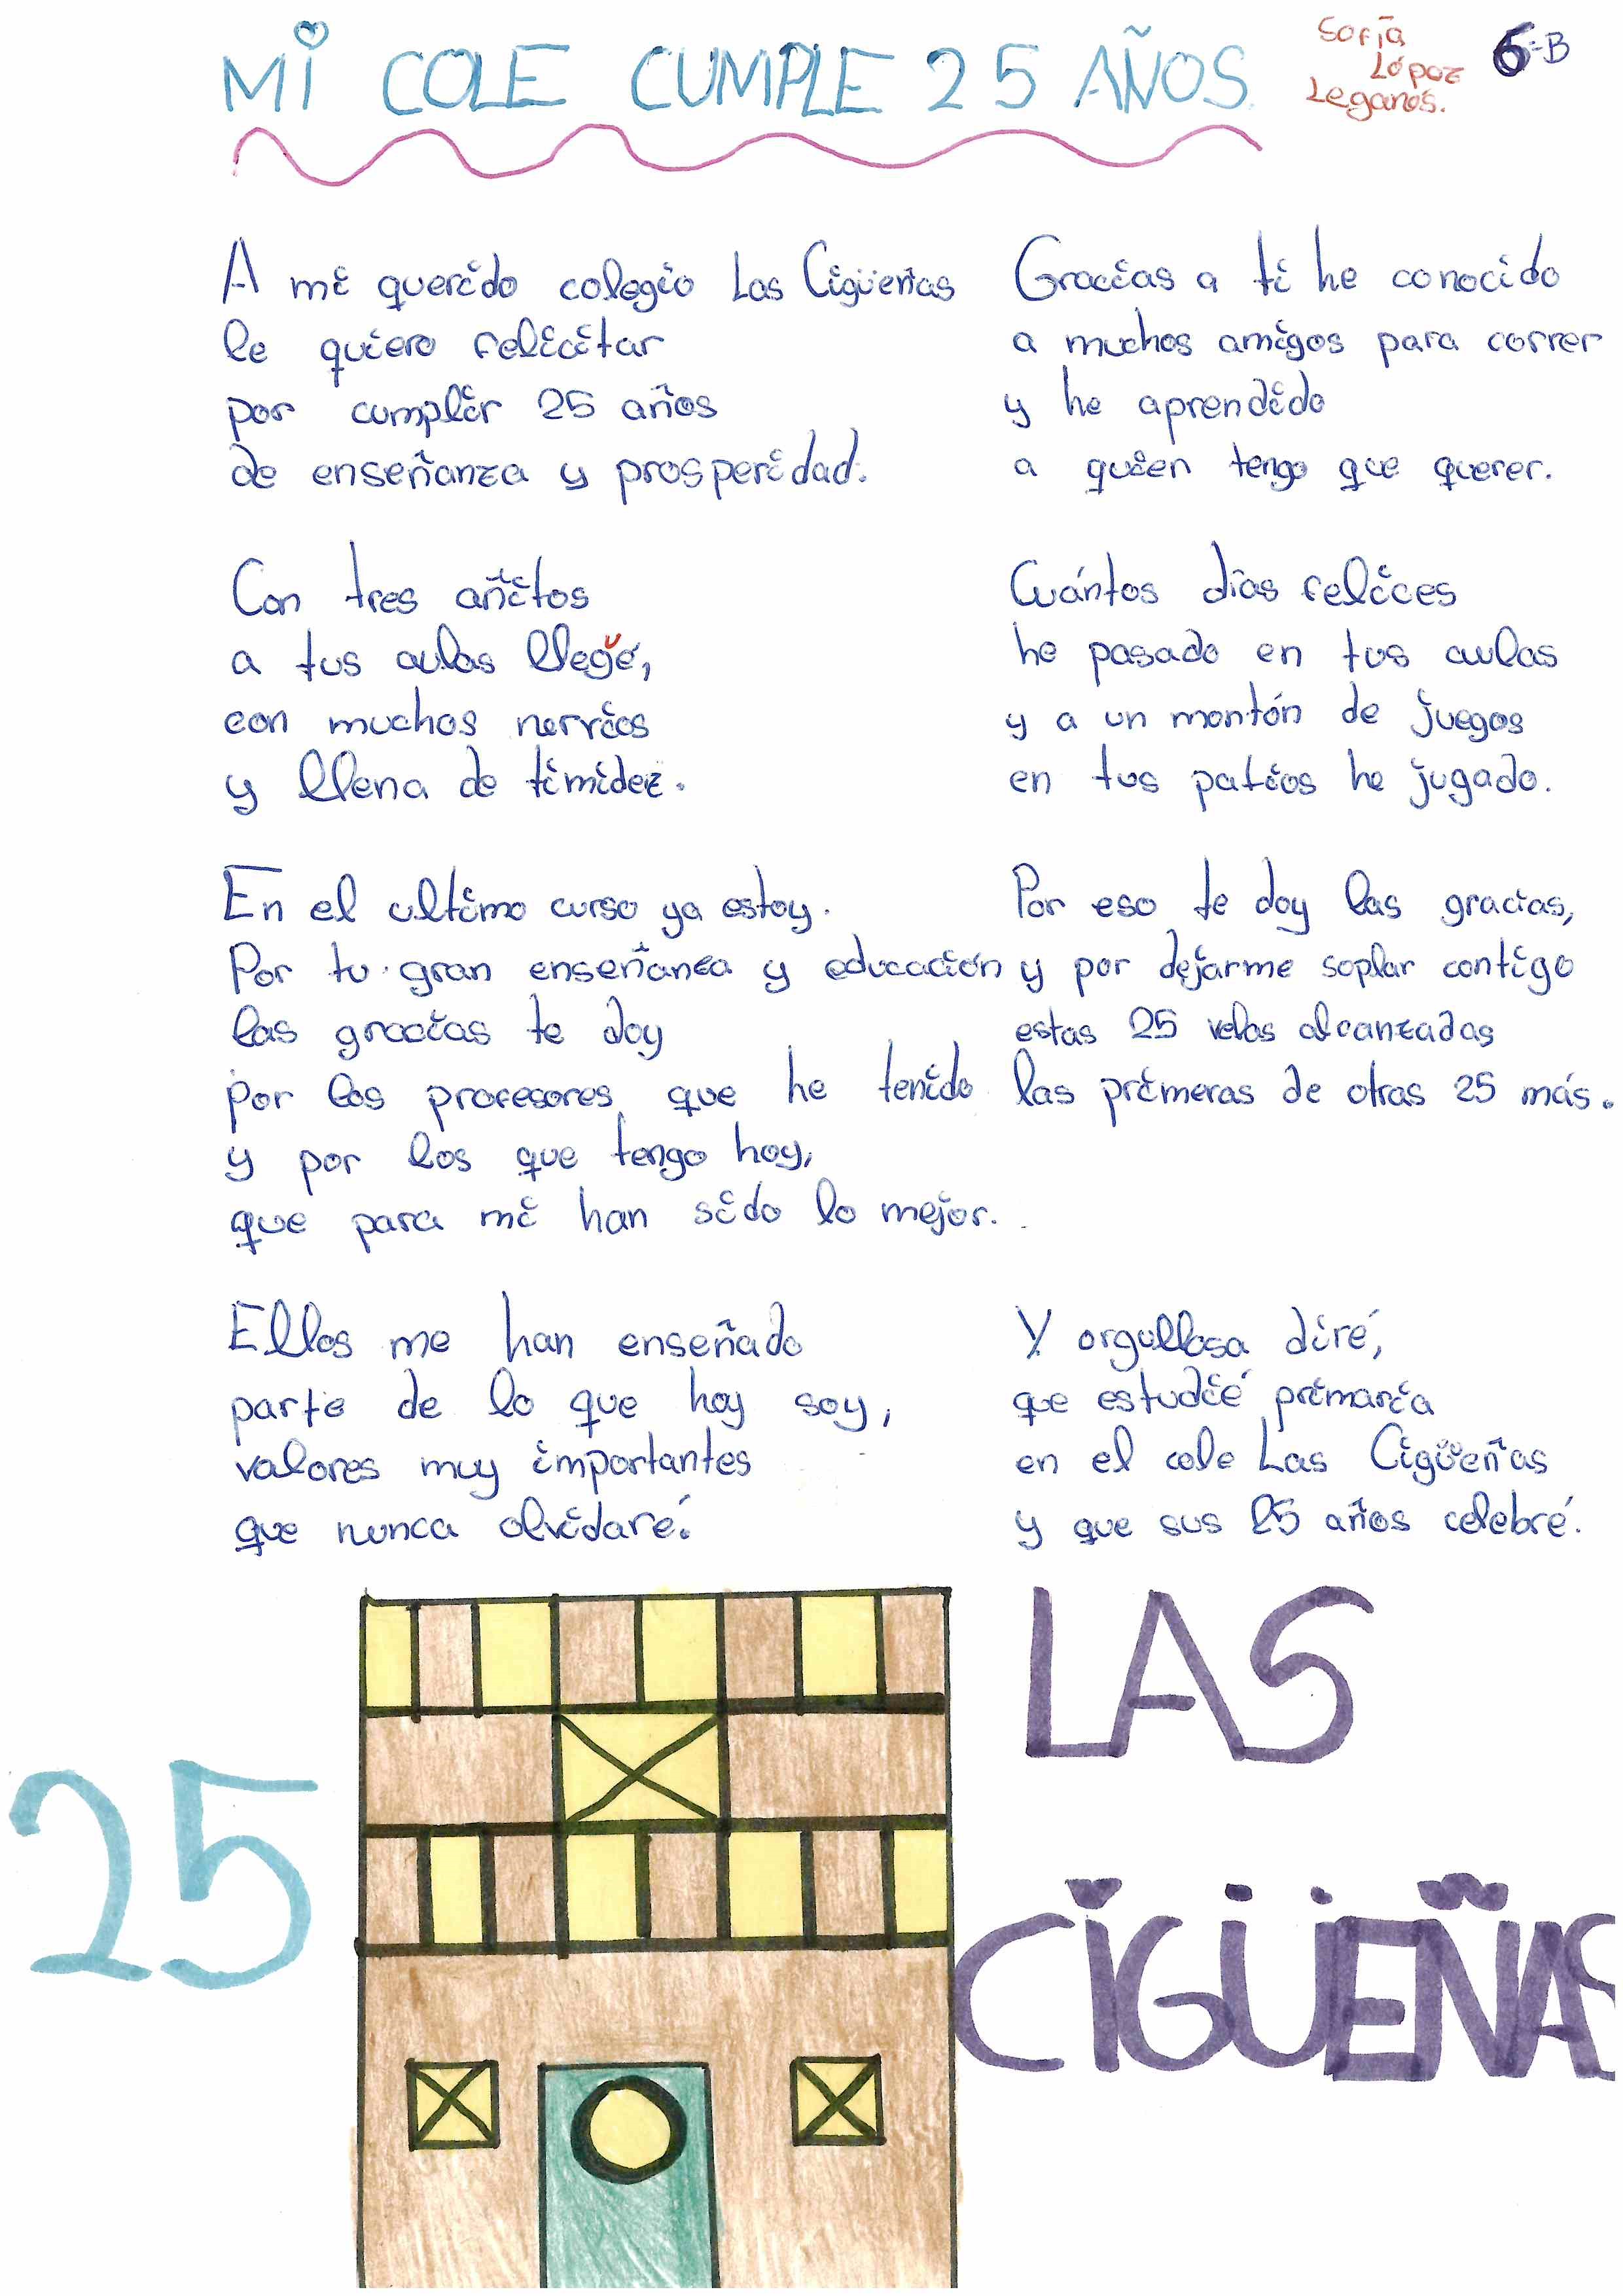 MI COLE CUMPLE 25 AÑOS.
Sofía
López
Leganés.
6ºB
A mi querido colegio Las Cigüeñas
le quiero felicitar
por cumplir 25 años
de enseñanza y prosperidad.
Con tres añitos
a tus aulas llegué,
con muchos nervios
y llena de timidez.
En el ultimo curso ya estoy.
Por tu gran enseñanza y educación
las gracias te doy
por los profesores que he tenido
y por los que tengo hoy,
que para mi han sido lo mejor.
Ellos me han enseñado
parte de lo que hoy soy,
valores muy importantes
que nunca olvidaré.
Gracias a ti he conocido
a muchos amigos para correr
y he aprendido
a quien tengo que querer.
Cuántos días felices
he pasado en tus aulas
y a un montón de juegos
en tus patios he jugado.
Por eso te doy las gracias,
y por dejarme soplar contigo
estas 25 velas alcanzadas
las primeras de otras 25 más.
Y orgullosa diré,
que estudié primaria
en el cole Las Cigüeñas
y que sus 25 años celebré.
25
LAS
CIGÜEÑAS